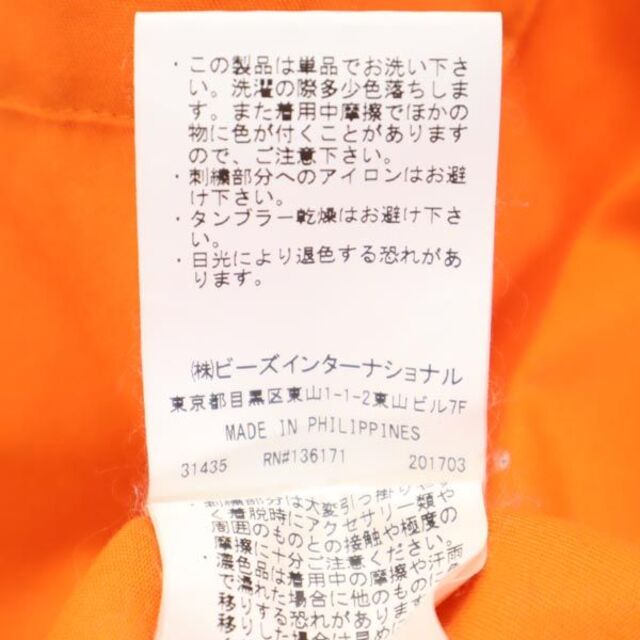 ・この製品は単品でお洗い下さ
い。洗濯の際多少色落ちしま
す。また着用中摩擦でほかの
物に色が付くことがあります
ので、ご注意下さい。
・刺繍部分へのアイロンはお避
け下さい。
・タンブラー乾燥はお避け下さ
い。
・日光により退色する恐れがあ
ります。
㈱ビーズインターナショナル
東京都目黒区東山1-1-2東山ビル7F
MADE IN PHILIPPINES
31435 RN#136171 201703
刺繍部分は大変引っ掛り
く着脱時にアクセサリー類や
周囲のものとの接触や極度の
摩擦に十分ご注意ください。
・濃色品は着用中の摩擦や汗雨
で濡れた場合に他のものに色
移りする恐れがあります
移りした場合は早めに